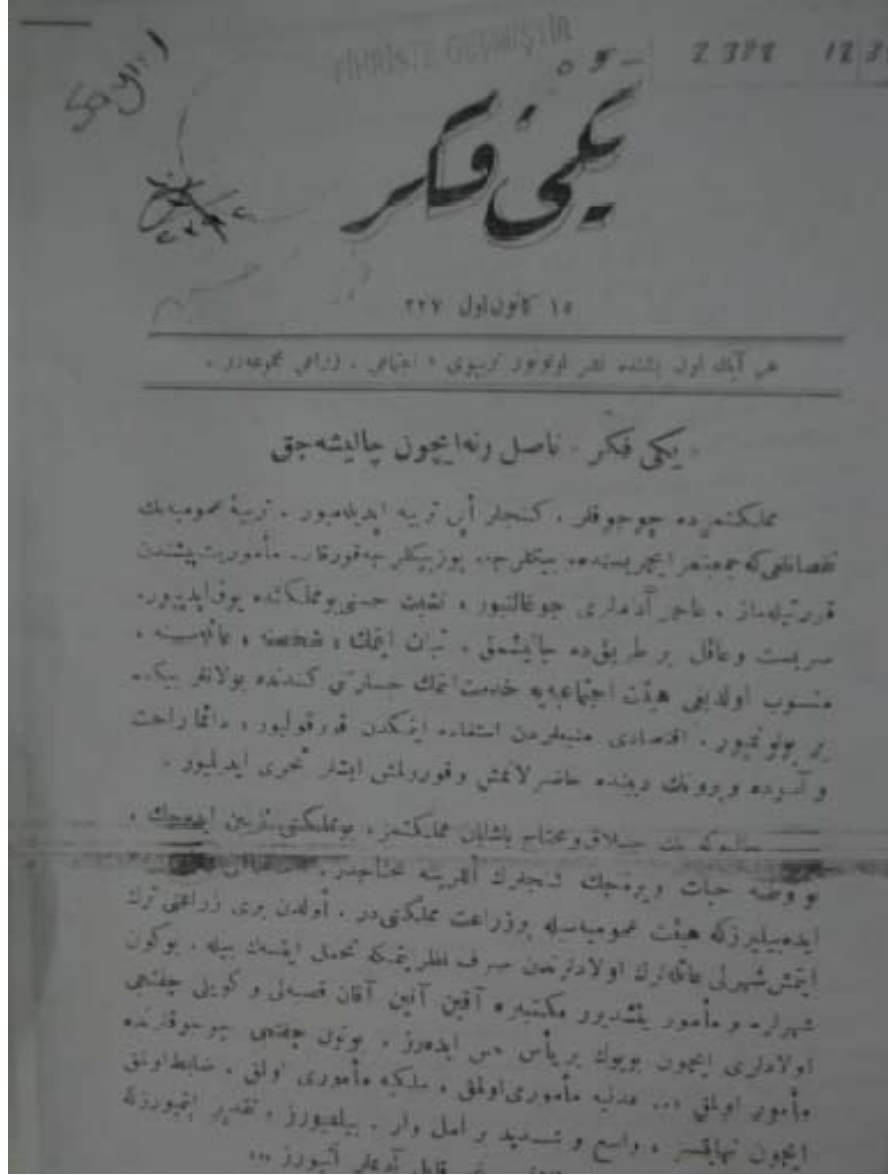 Sayı: 1
FİHRİSTE GEÇMİŞTİR
یکی فکر
١٥ کانون اول ٣٢٧
هر آیك اون بشنده نشر اولونور تربیوی ، اجتماعی ، زراعی مجموعه‌در .
« یکی فکر » ناصل و نه ایچون چالیشه‌جق
مملکتمزده چوجوقلر ، کنجلر أیی تربیه ایدیله‌میور . تربیهٔ عمومیه‌نك
نقصانلغی که جمعیتمز ایچریسنده بیکلرجه یوزبیکلرجه قورقاق مأموریت پیشندن
عاجز آدملری چوغالتیور ، تشبث حسنی بو مملکتده یوق ایدییور.
سربست و عاقل بر طریق‌ده چالیشمق ، ثبات ایتمك ، شخصنه ، عائله‌سنه ،
منسوب اولدیغی هیئت اجتماعیه‌یه خدمت اتمك جسارتی کندنده بولانلر بیکده
بر بولونمیور . اقتصادی منبعلردن استفاده ایتمکدن قورقولیور ، دائما راحت
و آسوده حاضرلانمش و قورولمش ایشلر تحری ایدیلیور .
چیپلاق و محتاج یاشایان مملکتمز ، بو مملکتی تزیین ایده‌جك ،
بو وطنه حیات ویره‌جك کنجلرك أللرینه محتاجدر .
ایده‌بیلیرز که هیئت عمومیه‌سیله بر زراعت مملکتی‌در . أولدن بری زراعتی ترك
ایتمش شهرلی عائله‌لرك اولادلرندن صرف نظر ایتمکه تحمل ایتسك بیله ، بوکون
شهرلره و مأمور یتشدیرن مکتبلره آقین آقین آقان قصبه‌لی و کویلی چفتجی
اولادلری ایچون بویوك بر یأس حس ایده‌رز . بوتون چفتجی چوجوقلرنده
مأمور اولمق ... عدلیه مأموری اولمق ، ملکیه مأموری اولمق ، ضابط اولمق
ایچون نهایتسز ، واسع و شدید بر امل وار . بیلمیورز ، تقدیر ایتمیورز که